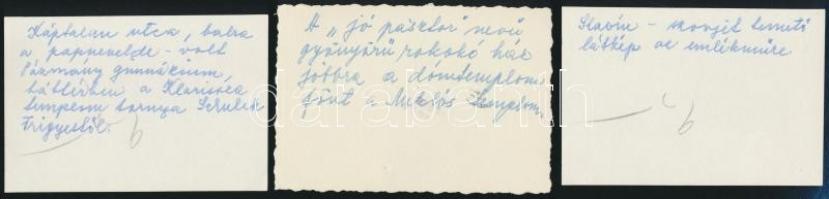 Káptalan utca, balra
a papnevelde – volt
Pázmány gimnázium,
háttérben a Klarissza
templom tornya Schulek
Frigyestől.
A „jó pásztor" nevű
gyönyörű rokokó ház
jobbra a dómtemplom
fönt a Miklós templom.
Slavín – szovjet temető
látkép az emlékműre
darabanth